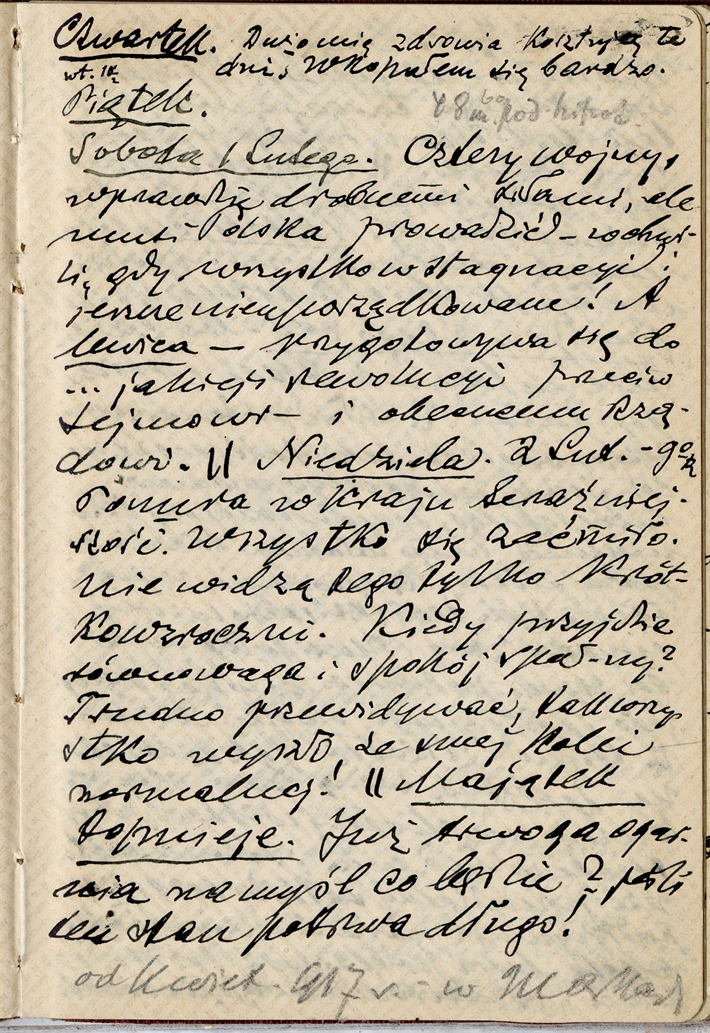 Czwartek. Dużo mię zdrowia kosztują te
dni, wkopałem się bardzo.
Piątek.
Sobota 1 Lutego. Cztery wojny,
wprawdzie drobnemi siłami, ale
musi Polska prowadzić – w chwi-
li, gdy wszystko w stagnacyi i
jeszcze nieuporządkowane! A
lewica – przygotowywa się do
... jakiejś rewolucyi przeciw
sejmowi – i obecnemu Rzą-
dowi. || Niedziela. 2 Lut. – go
Ponura w kraju teraźniej-
szość. Wszystko się zaćmiło.
nie widzą tego tylko Krót-
kowzroczni. Kiedy przyjdzie
równowaga i spokój
Trudno przewidywać, tak wszy-
stko wyszło ze swej kolei
normalnej! || Majątek
topnieje. Już trwoga ogar-
nia na myśl co będzie? jeśli
ten stan potrwa długo!
od Kwiet. 917 r. – w